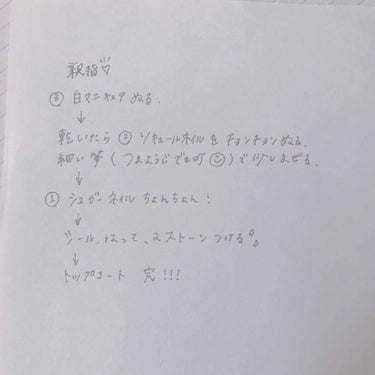 親指♡
③ 白マニキュアぬる.
↓
乾いたら ② ソキュールネイルを チョンチョンぬる.
細い筆 (つまようじでも可☺) で少しまぜる.
↓
① シュガーネイルちょんちょん!
↓
シール はって、ストーン つける
↓
トップコート 完!!!